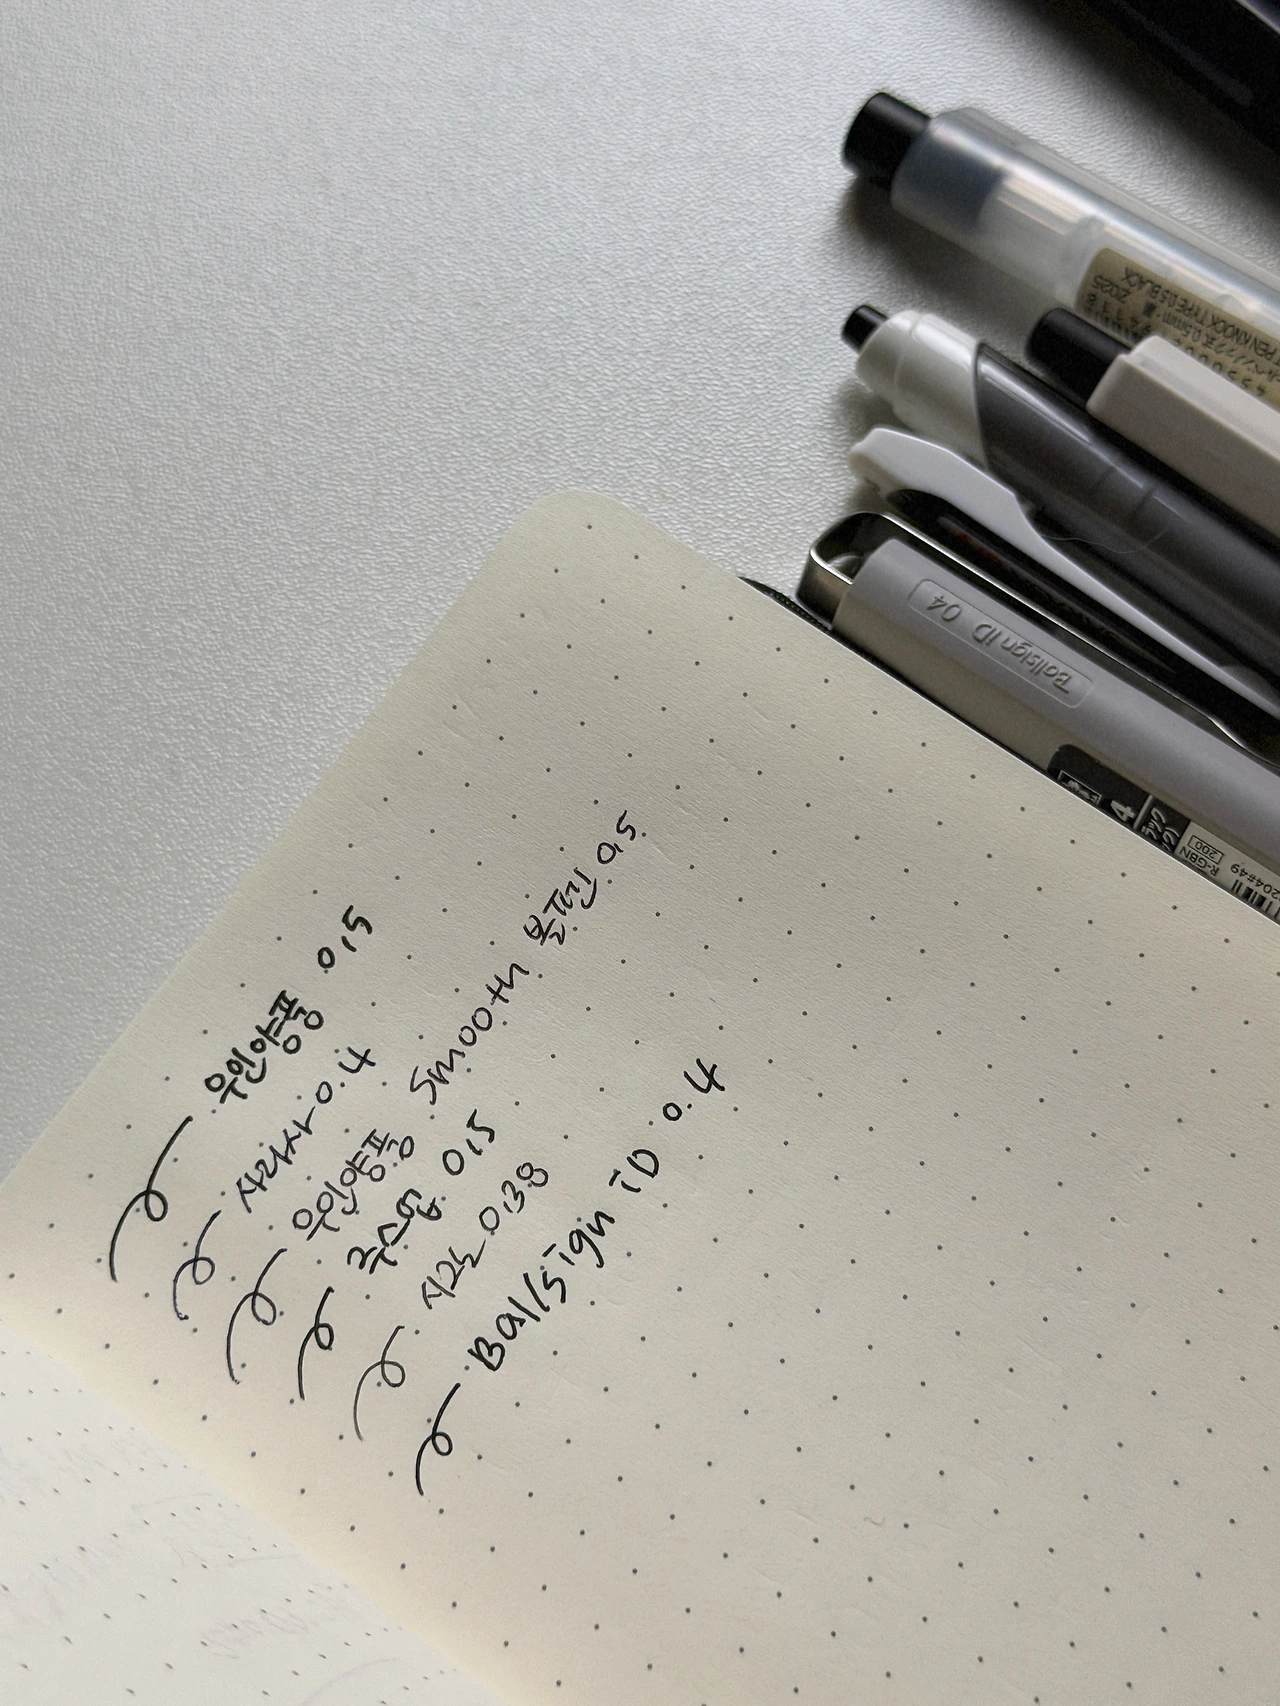 무인양품 0.5
사라사 0.4
무인양품 Smooth 볼펜 0.5
주스업 0.5
시그노 0.38
Ballsign iD 0.4
PEN KNOCK TYPE 0.5 BLACK
2025
Ballsign iD 04
4
R-GBN
200
204#49